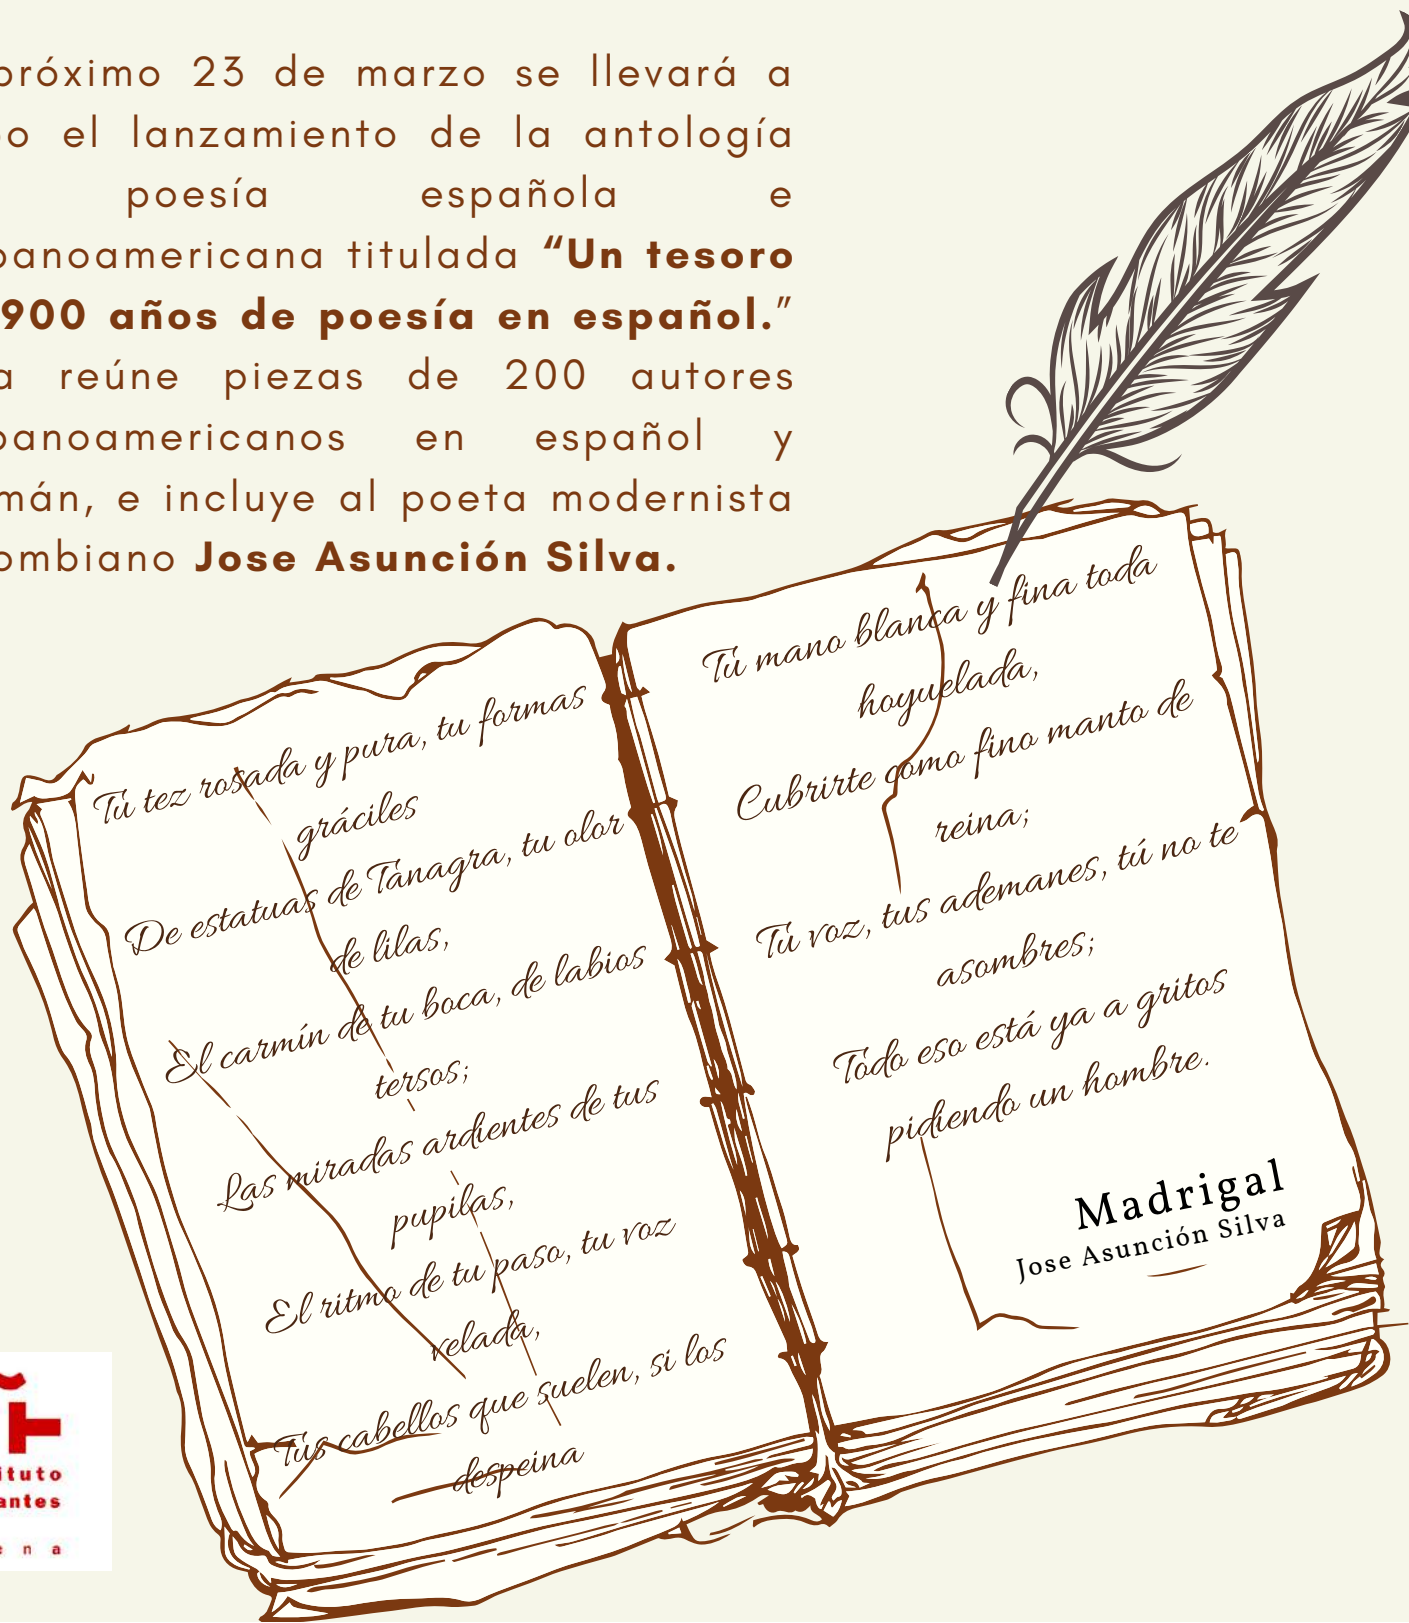 próximo 23 de marzo se llevará a
o el lanzamiento de la antología
poesía española e
panoamericana titulada “Un tesoro
900 años de poesía en español.”
a reúne piezas de 200 autores
panoamericanos en español y
mán, e incluye al poeta modernista
ombiano Jose Asunción Silva.
Tu tez rosada y pura, tu formas
gráciles
De estatuas de Tánagra, tu olor
de lilas,
El carmín de tu boca, de labios
tersos;
Las miradas ardientes de tus
pupilas,
El ritmo de tu paso, tu voz
velada,
Tus cabellos que suelen, si los
despeina
Tu mano blanca y fina toda
hoyuelada,
Cubrirte como fino manto de
reina;
Tu voz, tus ademanes, tú no te
asombres;
Todo eso está ya a gritos
pidiendo un hombre.
Madrigal
Jose Asunción Silva
ituto
antes
e n a